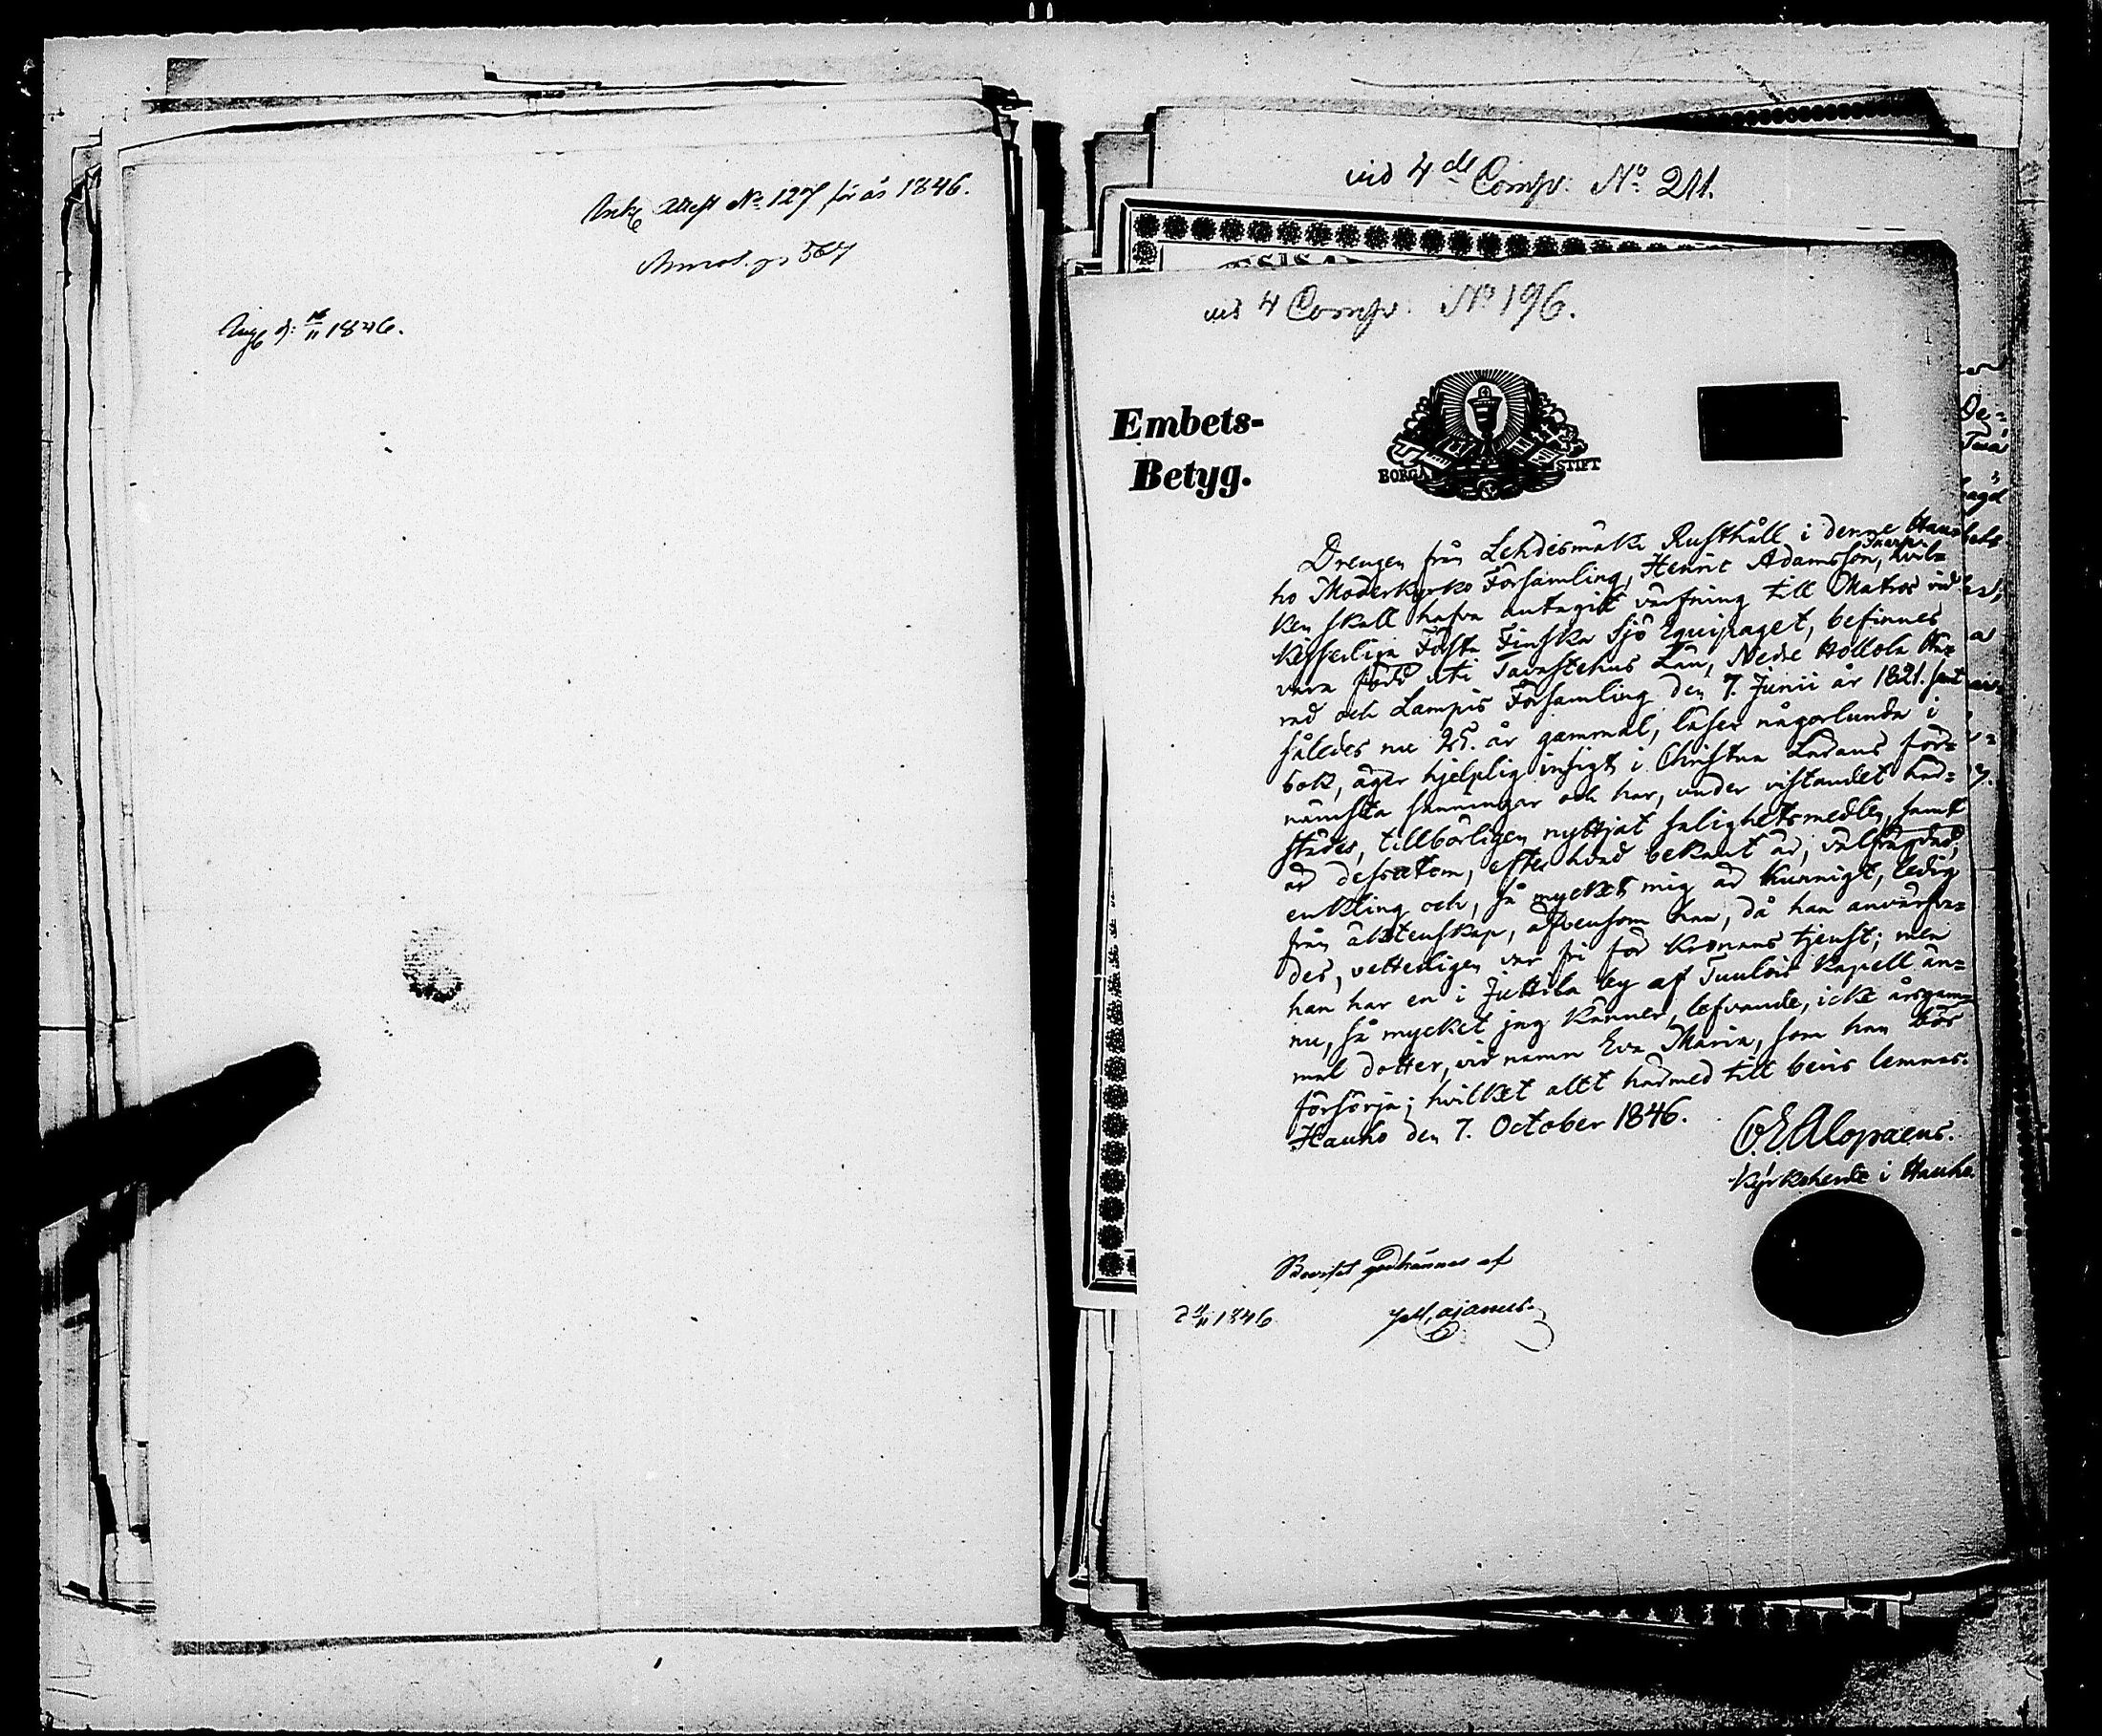 Attest No 127 för år 1846.
567
d: 16/11 1846.
vid 4de Comp: No 211.
vid 4 Comp: No 196.
Embets-
Betyg.
BORGÅ STIFT
Drengen från Lehdesmäki Rusthåll i denne Hau-
ho Moderkyrko Församling, Henric Adamsson, hvil-
ken skall hafva antagit värfning till Matros vid
Kejserliga Första Finska Sjö Equipaget, befinnes
vara född uti Tavastehus Län, Nedre Hollola Hä-
rad och Lampis Församling den 7. Junii år 1821. samt
således nu 25. år gammal, läser någorlunda i
bok, äger hjelplig insigt i Christna Lärans för-
nämsta sanningar och har, under vistandet här-
städes, tillbörligen nyttjat salighetsmedlen, samt
är dessutom, efter hvad bekant är, välfrägdad,
enkling och, så mycket mig är kunnigt, ledig
från äktenskap, äfvensom han, då han anvärfva-
des, vetterligen var fri för Kronans tjenst; men
han har en i Juttila by af Tuulois Kapell än-
nu, så mycket jag känner, lefvande, icke årsgam-
mal dotter, vid namn Eva Maria, som han bör
försörja; hvilket allt härmed till bevis lemnas.
Hauho den 7. October 1846.
C.E. Alopaeus.
Kyrkoherde i Hauho.
Beviset godkännes af
1846